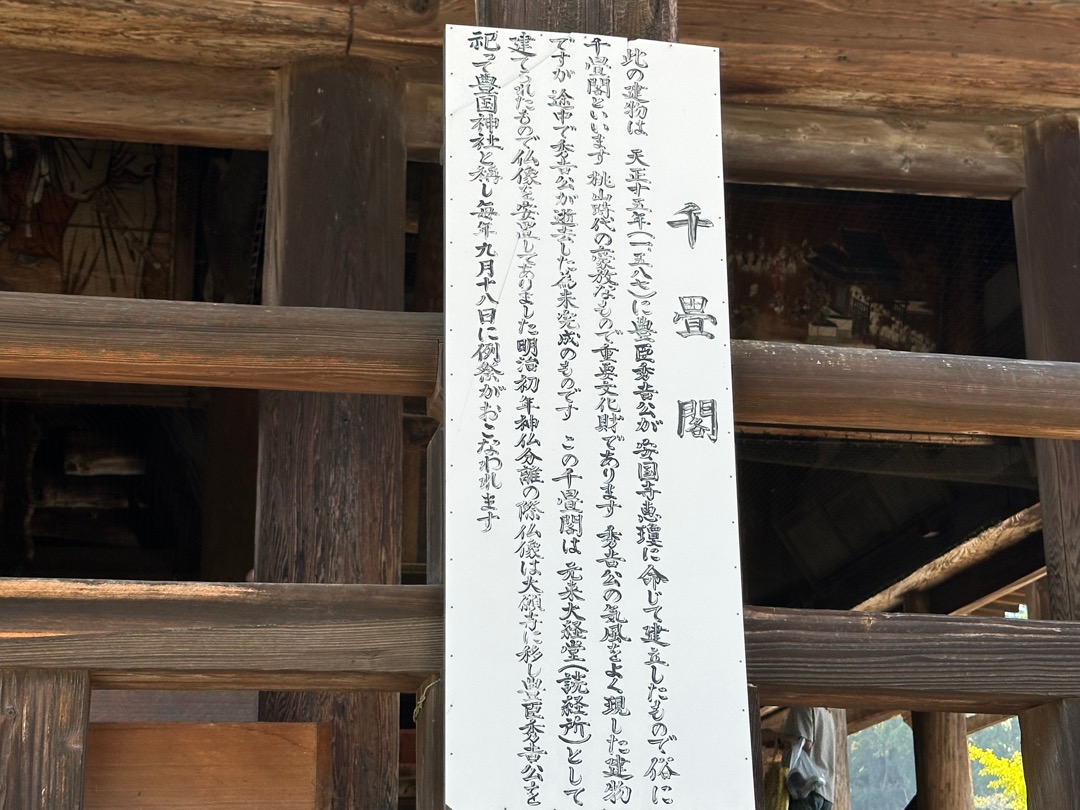 千畳閣
此の建物は 天正十五年(一、五八七)に豊臣秀吉公が 安国寺恵瓊に命じて建立したもので俗に
千畳閣といいます 桃山時代の豪放なもので重要文化財であります 秀吉公の気風をよく現した建物
ですが 途中で秀吉公が逝去した為未完成のものです この千畳閣は 元来大経堂(読経所)として
建てられたもので仏像を安置してありました明治初年神仏分離の際仏像は大願寺に移し豊臣秀吉公を
祀って豊国神社と称し毎年九月十八日に例祭がおこなわれます